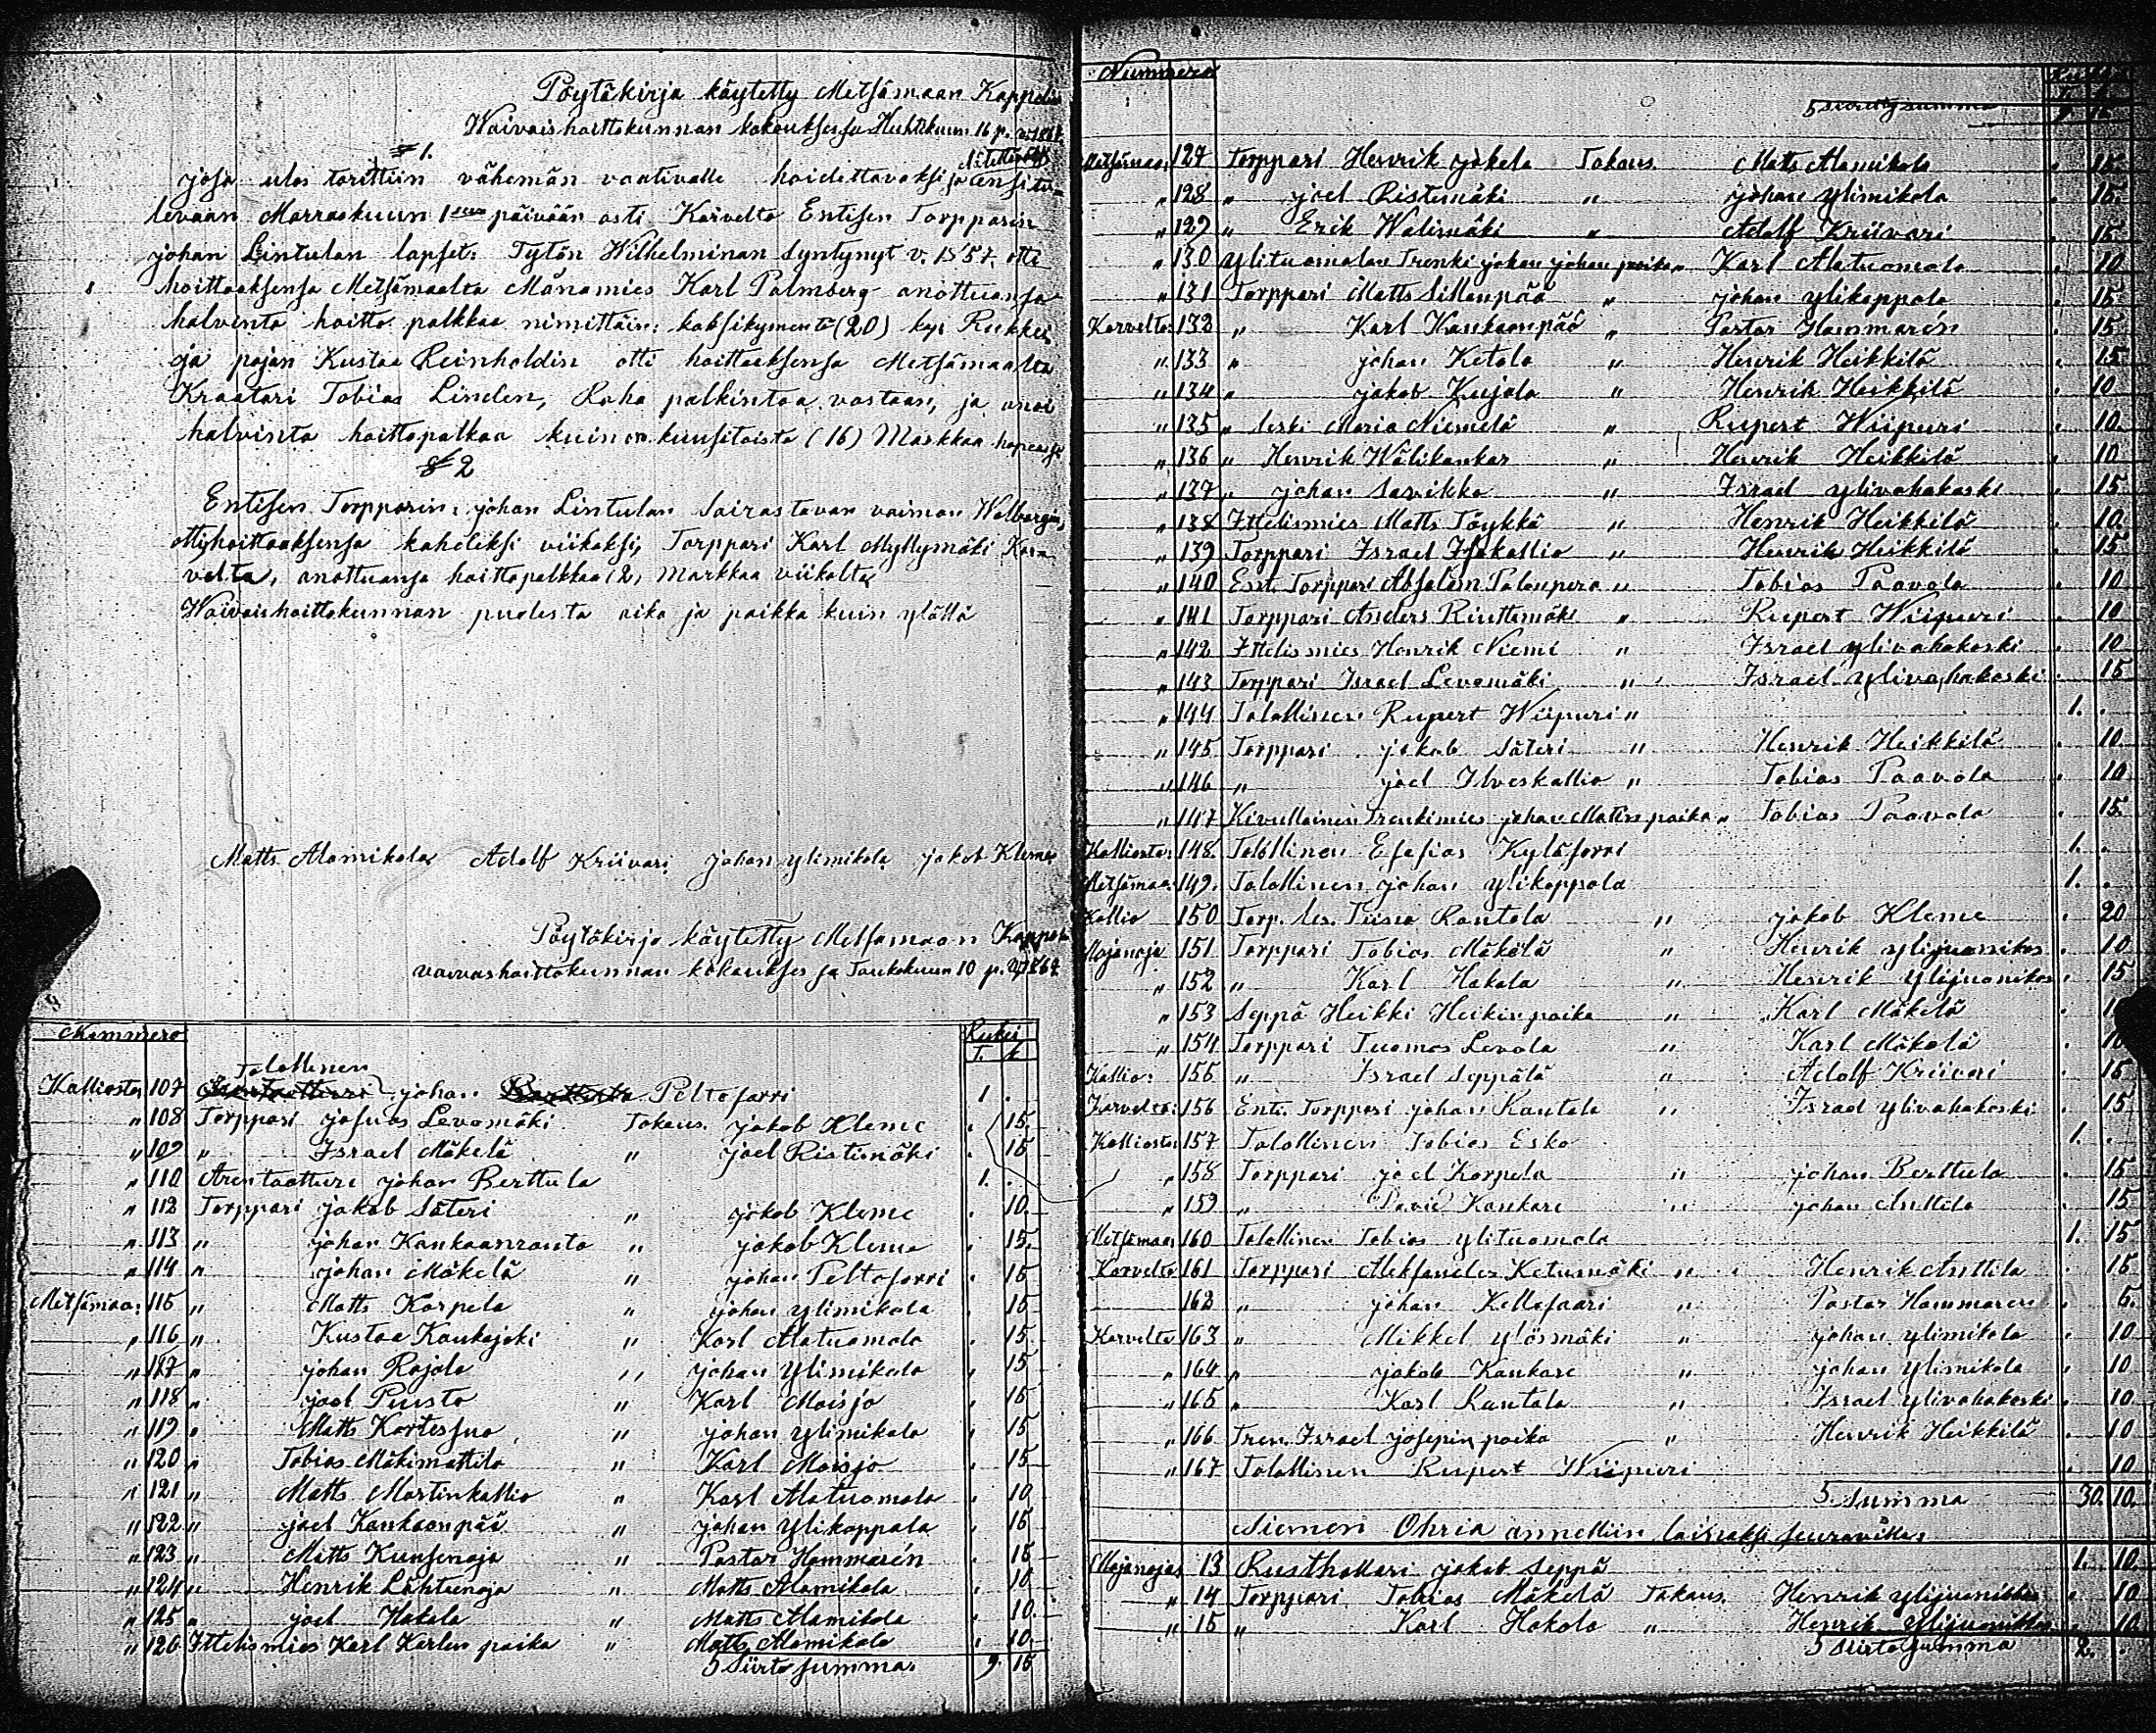 Pöytäkirja käytetty Metsämaan Kappelin
Waivaishoittokunnan kokouksessa Huhtikuun 16 p. v.
§ 1.
josa ulos torittiin vähemän vaativalle hoidettavaksi ja ensitu-
levaan Marraskuun 1 päivään asti Koivelta Entisen Torpparin
johan Lintulan lapset: Tytön Wilhelminan Syntynyt v. 1857. otti
hoittaaksensa Metsämaalta Mänamies Karl Palmberg anottuansa
halvinta hoitto palkkaa nimittäin: kaksikymentä (20) kp:
ja pojan Kustaa Reinholdin otti hoittaaksensa Metsämaalta
Kraatari Tobias Linden, Raha palkintoa vastaan, ja anoi
halvinta hoittopalkaa kuin on kuusitoista (16) Markkaa hopeassa
§ 2
Entisen Torpparin johan Lintulan Sairastavan vaimon Walborgin,
otti hoittaaksensa kahdeksi viikoksi, Torppari Karl Myllymäki Kor-
velta, anottuansa hoittopalkkaa (2) Markkaa viikolta
Waivaishoittokunnan puolesta aika ja paikka kuin ylällä
Matts Alamikola Adolf Kriivari johan ylimikola jakob Kleme
Pöytäkirja käytetty Metsämaan Kappelin
vaivashoittokunnan kokoukses sa Toukokuun 10 p. v. 1864
Nummero Rukei
T. k
Talollinen
Kalliosta 107 johan Peltosarri 1 .
" 108 Torppari josuas Levomäki Takaus jakob Kleme . 15.
" 109 " Israel Mäkelä " joel Ristimäki . 15
" 110 Arentaatturi johan Berttula 1. .
" 112 Torppari jakob Säteri " jakob Kleme . 10.
" 113 " johan Kankaanranta " jakob Kleme . 15.
" 114 " johan Mäkelä " johan Peltosorri . 15
Metsämaa: 115 " Matts Korpela " johan ylimikola . 15
" 116 " Kustaa Kaukajoki " Karl Alatuomola . 15.
" 117 " johan Rajala " johan Ylimikola . 15
" 118 " joel Puisto " Karl Moisjo . 15
" 119 " Matts Kortessuo " johan ylimikola . 15
" 120 " Tobias Mäkimattila " Karl Moisjo . 15
" 121 " Matts Martinkallio " Karl Alatuomola . 10
" 122 " joel Kankaanpää " johan Ylikappala . 15
" 123 " Matts Kuusenoja " Pastor Hammarén . 15
" 124 " Henrik Lähteenoja " Matts Alamikola . 10
" 125 " joel Hakala " Matts Alamikola . 10.
" 126 Ittelismies Karl Karlen poika " Matts Alamikola . 10
S Siirto summa. 9 15
Nummero
S siirretty summa 9. 15
Metsämaa: 127 Torppari Henrik jäkelä Takaus. Matts Alamikola . 15.
" 128 " joel Ristimäki " johan ylimikola . 15.
" 129 " Erik Wälimäki " Adolf Kriivari . 15
" 130 ylituomolan Trenki johan johan poika " Karl Alatuomola . 10
" 131 Torppari Matts Sillanpää " johan ylikappala . 15
Korvelta: 132 " Karl Kankaanpää " Pastor Hammarén . 15
" 133 " johan Ketola " Henrik Heikkilä . 15
" 134 " jakob Kujala " Henrik Heikkilä . 10
" 135 " leski Maria Niemelä " Rupert Wiipuri . 10.
" 136 " Henrik Wälikankar " Henrik Heikkilä . 10
" 137 " johan Savikko " Israel ylivahakoski . 15
" 138 Ittelismies Matts Töykkä " Henrik Heikkilä . 10.
" 139 Torppari Israel Isokallio " Henrik Heikkilä . 15
" 140 Ent. Torppari Absalom Talonpera " Tobias Paavola . 10
" 141 Torppari Anders Riuttamäki " Rupert Wiipuri . 10
" 142 Ittelismies Henrik Niemi " Israel ylivahakoski . 10
" 143 Torppari Israel Levomäki " Israel ylivahakoski . 15
" 144 Talollinen Rupert Wiipuri " 1. .
" 145 Torppari jakob Säteri " Henrik Heikkilä . 10.
" 146 " joel Ilveskallio " Tobias Paavola . 10
" 147 Kivullainen Trenkimies johan Mattin poika " Tobias Paavola . 15.
Kalliosta: 148. Talollinen Esesias Kyläsorri 1. .
Metsämaa: 149. Talollinen johan ylikappala 1. .
Kallio 150 Torp. les. Tiina Rantala " jakob Kleme . 20
Majanoja 151 Torppari Tobias Mäkelä " Henrik ylijuonikas . 10.
" 152 " Karl Hakala " Henrik Ylijuonikas . 15
" 153 Seppä Heikki Heikin poika " Karl Mäkelä
" 154 Torppari Tuomas Levola " Karl Mäkelä . 10
Kallio: 155 " Israel Seppälä " Adolf Kriivari . 15
Korvelta: 156 Ent. Torppari johan Rautala " Israel ylivahakoski . 15
Kalliosta: 157 Talollinen Tobias Esko 1. .
" 158 Torppari joel Korpela " johan Berttula . 15
" 159 " David Kankare " johan Anttila . 15
Metsämaa: 160 Talollinen Tobias ylituomola 1. 15
Korvelta 161 Torppari Aleksander Ketunmäki " Henrik Anttila . 15
162 " johan Kellosaari " Pastor Hammaren . 5.
Korvelta 163 " Mikkel ylösmäki " johan ylimikola . 10
" 164 " jakob Kankare " johan ylimikola . 10
" 165 " Karl Rautala " Israel ylivahakoski . 10
" 166 Tren. Israel josepin poika " Henrik Heikkilä . 10
" 167 Talollinen Rupert Wiipuri . 10
S. Summa 30. 10.
Siemen Ohria annettiin lainaksi seuraville:
Majanoja: 13 Rusthollari jakob Seppä 1. 10.
" 14 Torppari Tobias Mäkelä Takaus. Henrik ylijuonikka . 10
" 15 " Karl Hakala " Henrik Ylijuonikka . 10
S Siirto summa 2. .